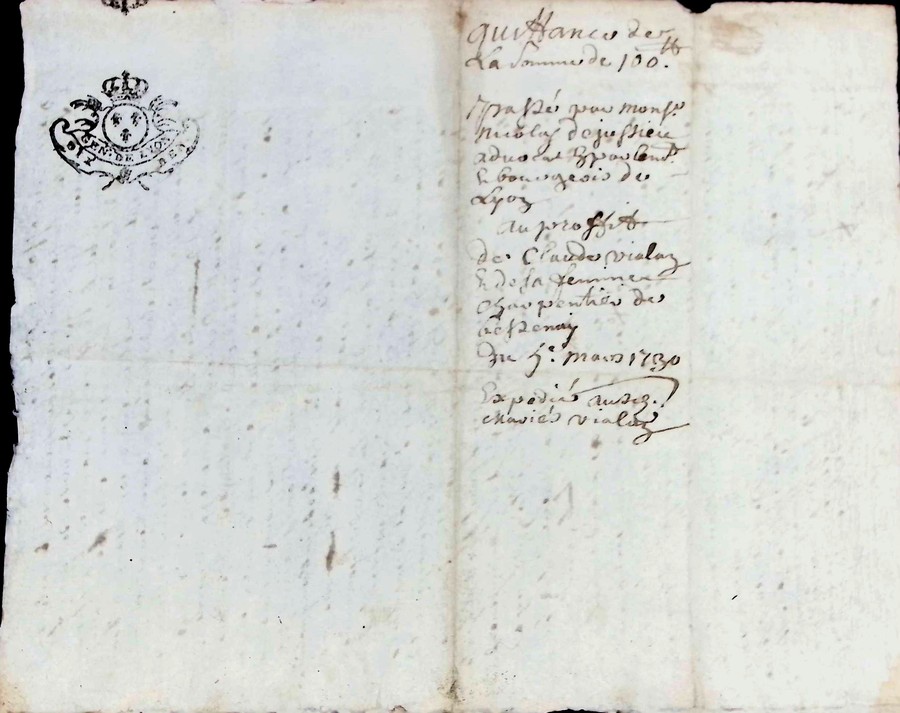 GEN. DE LYON
DIX DEN
quittance de
La somme de 100 ₶.
passée par monsr.
Nicolas dejussieu
advocat En parlemt.
& bourgeois de
Lyon
au proffit
de Claude vialay
& de sa femme
charpentier de
du 5e. mars 1730
Expédié ausd.
mariés vialay